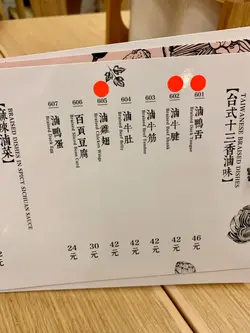 【台式十三香滷味】
TAIWANESE BRAISED DISHES
601
滷鴨舌
Braised Duck Tongue
46元
602
滷牛腱
Braised Beef Shank
42元
603
滷牛筋
Braised Beef Tendon
42元
604
滷牛肚
42元
605
滷雞翅
30元
606
百頁豆腐
24元
607
滷鴨蛋
Braised Duck Egg
【麻辣滷菜】
BRAISED DISHES IN SPICY SICHUAN SAUCE
元